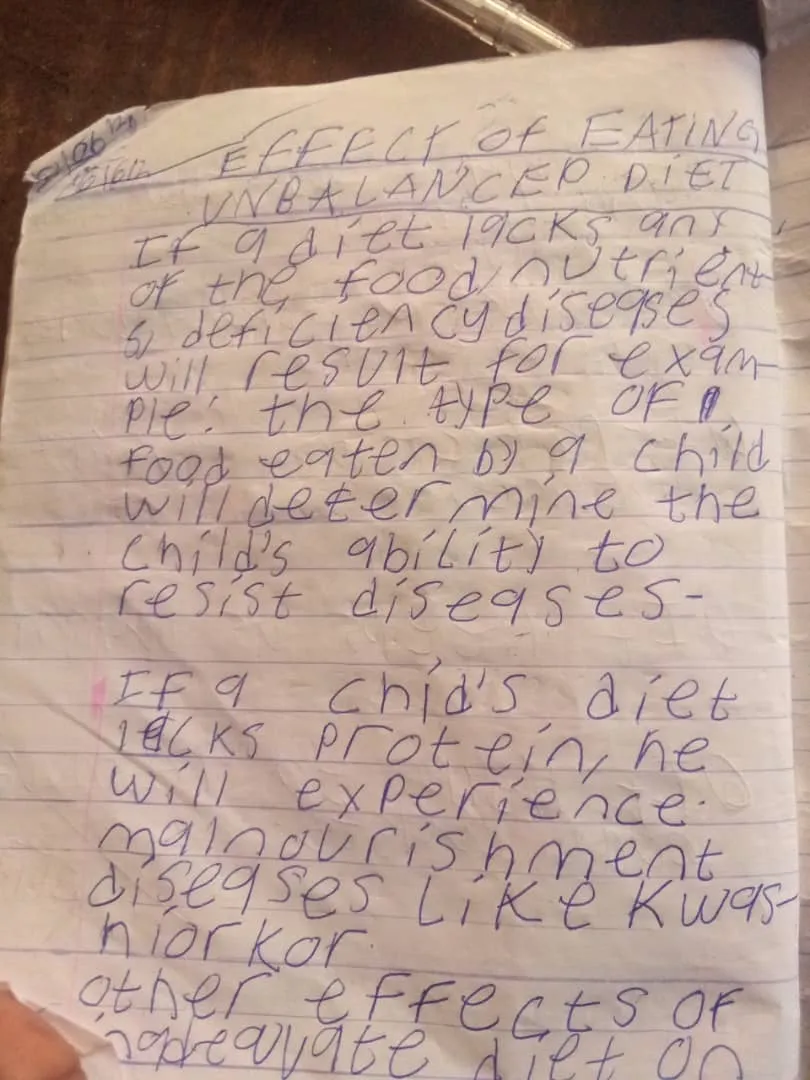 EFFECT OF EATING
UNBALANCED DIET
If a diet lacks any
of the food nutrient
s, deficiency diseases
will result for exam-
ple: the type of
food eaten by a child
will determine the
child's ability to
resist diseases-
If a chid's diet
lacks protein, he
will experience
malnourishment
diseases like kwas-
hiorkor.
other effects of
diet on